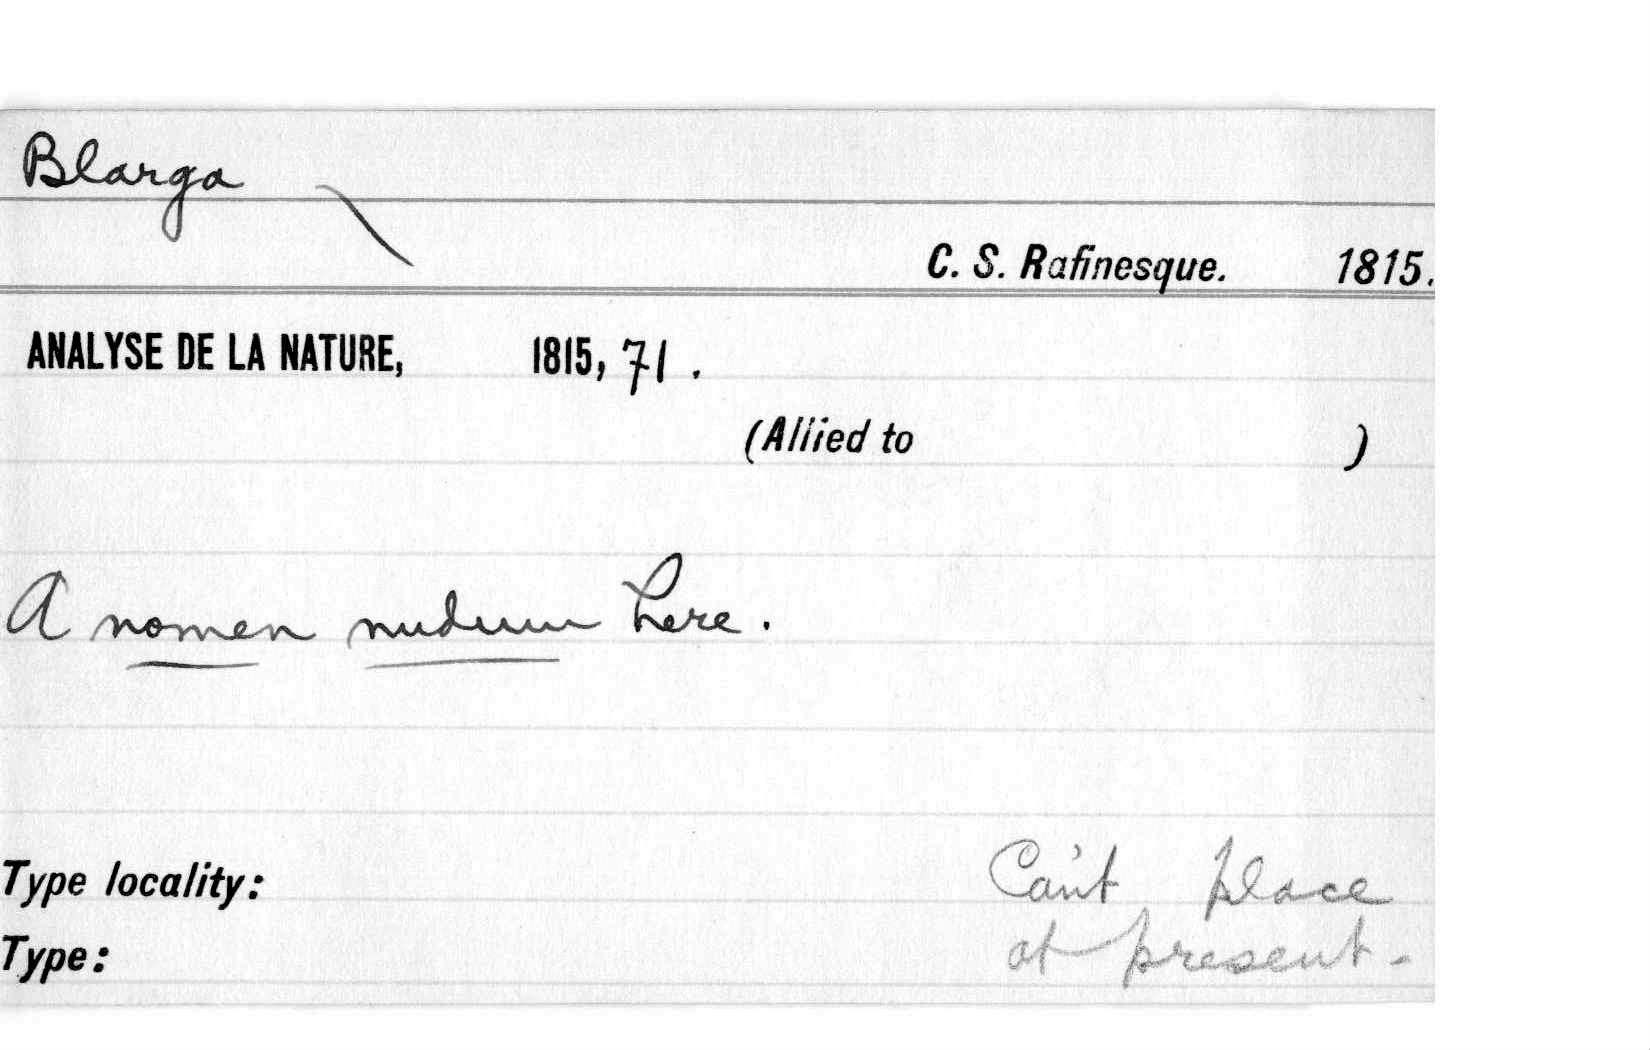 Blarga
C. S. Rafinesque. 1815.
ANALYSE DE LA NATURE, 1815, 71.
(Allied to )
A nomen nudum here.
Type locality:
Can't place
Type:
at present -